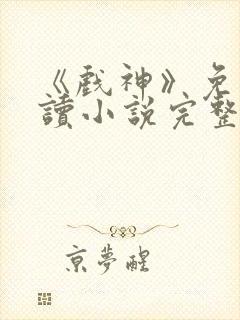 《戲神》免
讀小說完整
京夢醒